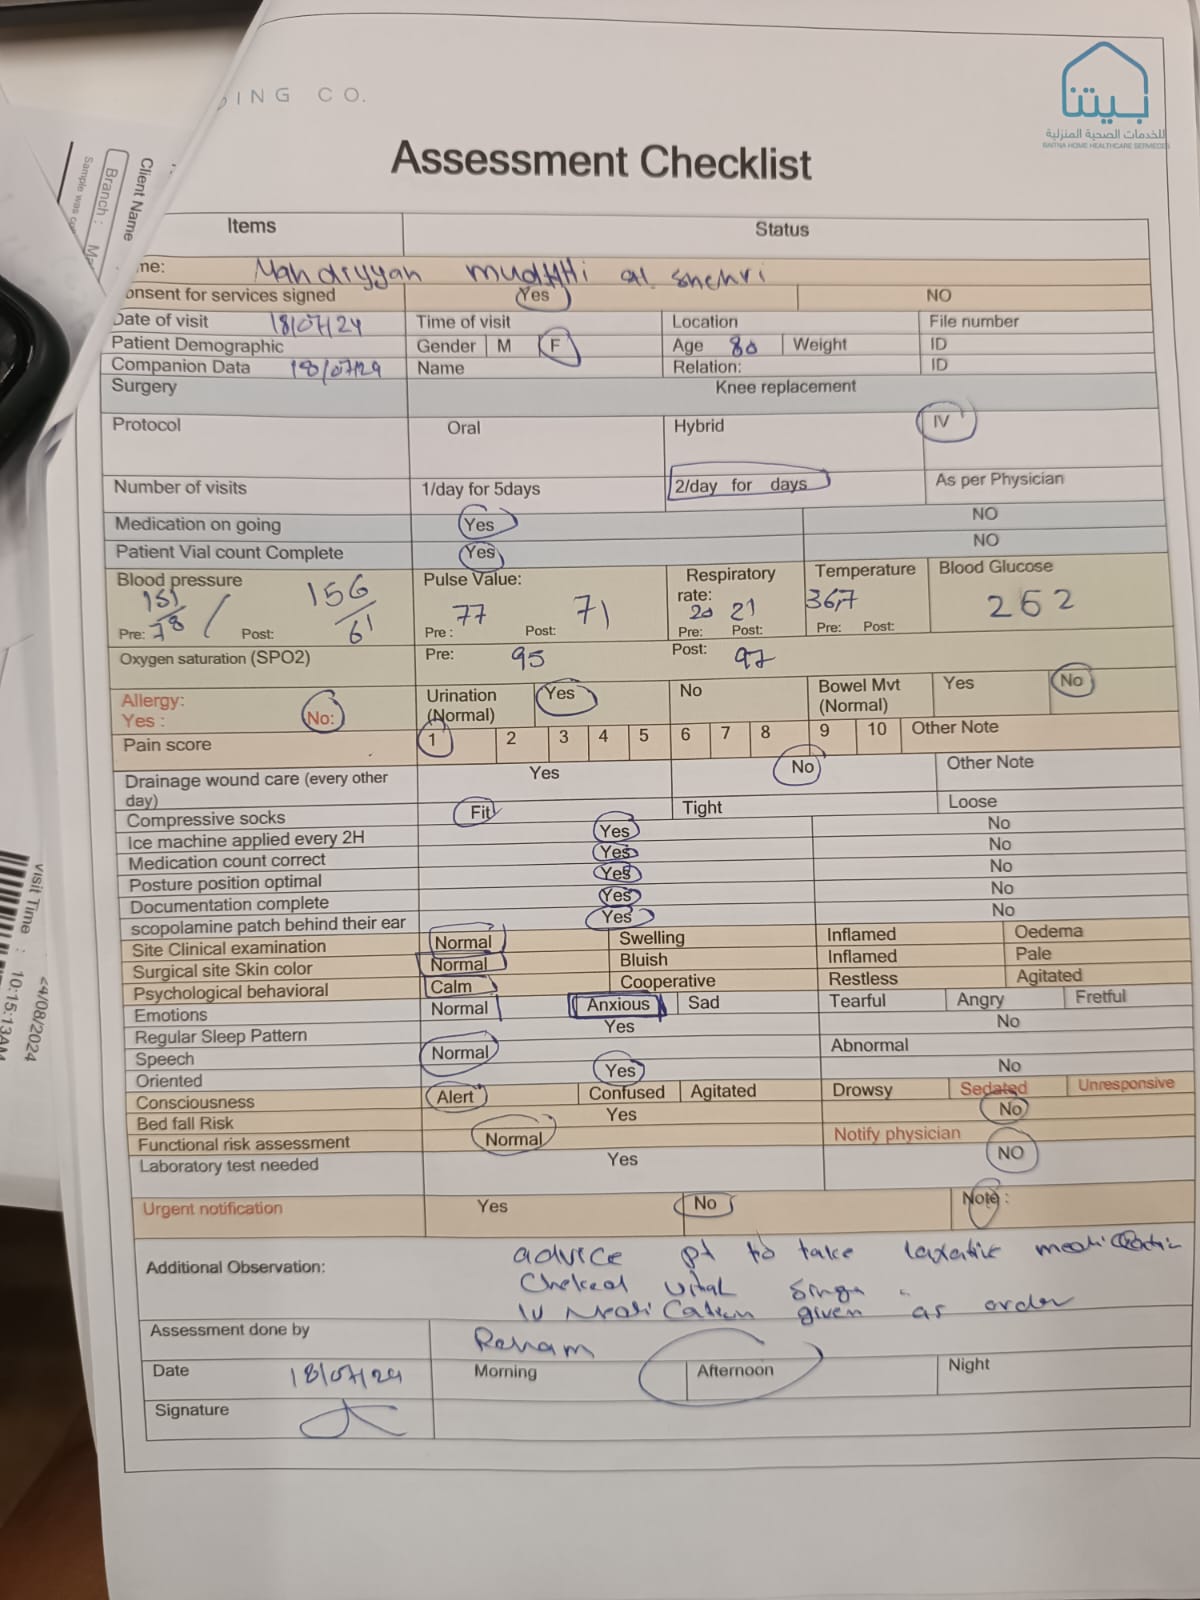 ING CO.
بيتنا
للخدمات الصحية المنزلية
BAITNA HOME HEALTHCARE SERVICES
Assessment Checklist
Client Name
Branch :
Sample was
visit Time :
<4/08/2024
10:15:13AM
Items Status
me: Mahdiyyah al shehri
onsent for services signed Yes NO
Date of visit 18/07/24 Time of visit Location File number
Patient Demographic Gender M F Age 80 Weight ID
Companion Data 18/07/24 Name Relation: ID
Surgery Knee replacement
Protocol Oral Hybrid IV
Number of visits 1/day for 5days 2/day for days As per Physician
Medication on going Yes NO
Patient Vial count Complete Yes NO
Blood pressure Pulse Value: Respiratory rate: Temperature Blood Glucose
151/78 156/61 77 71 20 21 36,7 262
Pre: Post: Pre: Post: Pre: Post: Pre: Post:
Oxygen saturation (SPO2) Pre: 95 Post: 97
Allergy: Yes : No: Urination (Normal) Yes No Bowel Mvt (Normal) Yes No
Pain score 1 2 3 4 5 6 7 8 9 10 Other Note
Drainage wound care (every other day) Yes No Other Note
Compressive socks Fit Tight Loose
Ice machine applied every 2H Yes No
Medication count correct Yes No
Posture position optimal Yes No
Documentation complete Yes No
scopolamine patch behind their ear Yes No
Site Clinical examination Normal Swelling Inflamed Oedema
Surgical site Skin color Normal Bluish Inflamed Pale
Psychological behavioral Calm Cooperative Restless Agitated
Emotions Normal Anxious Sad Tearful Angry Fretful
Regular Sleep Pattern Yes No
Speech Normal Abnormal
Oriented Yes No
Consciousness Alert Confused Agitated Drowsy Sedated Unresponsive
Bed fall Risk Yes No
Functional risk assessment Normal Notify physician
Laboratory test needed Yes NO
Urgent notification Yes No Note :
Additional Observation: advice pt to take laxative
vital
IV Medication given as order
Assessment done by Reham
Date 18/07/24 Morning Afternoon Night
Signature